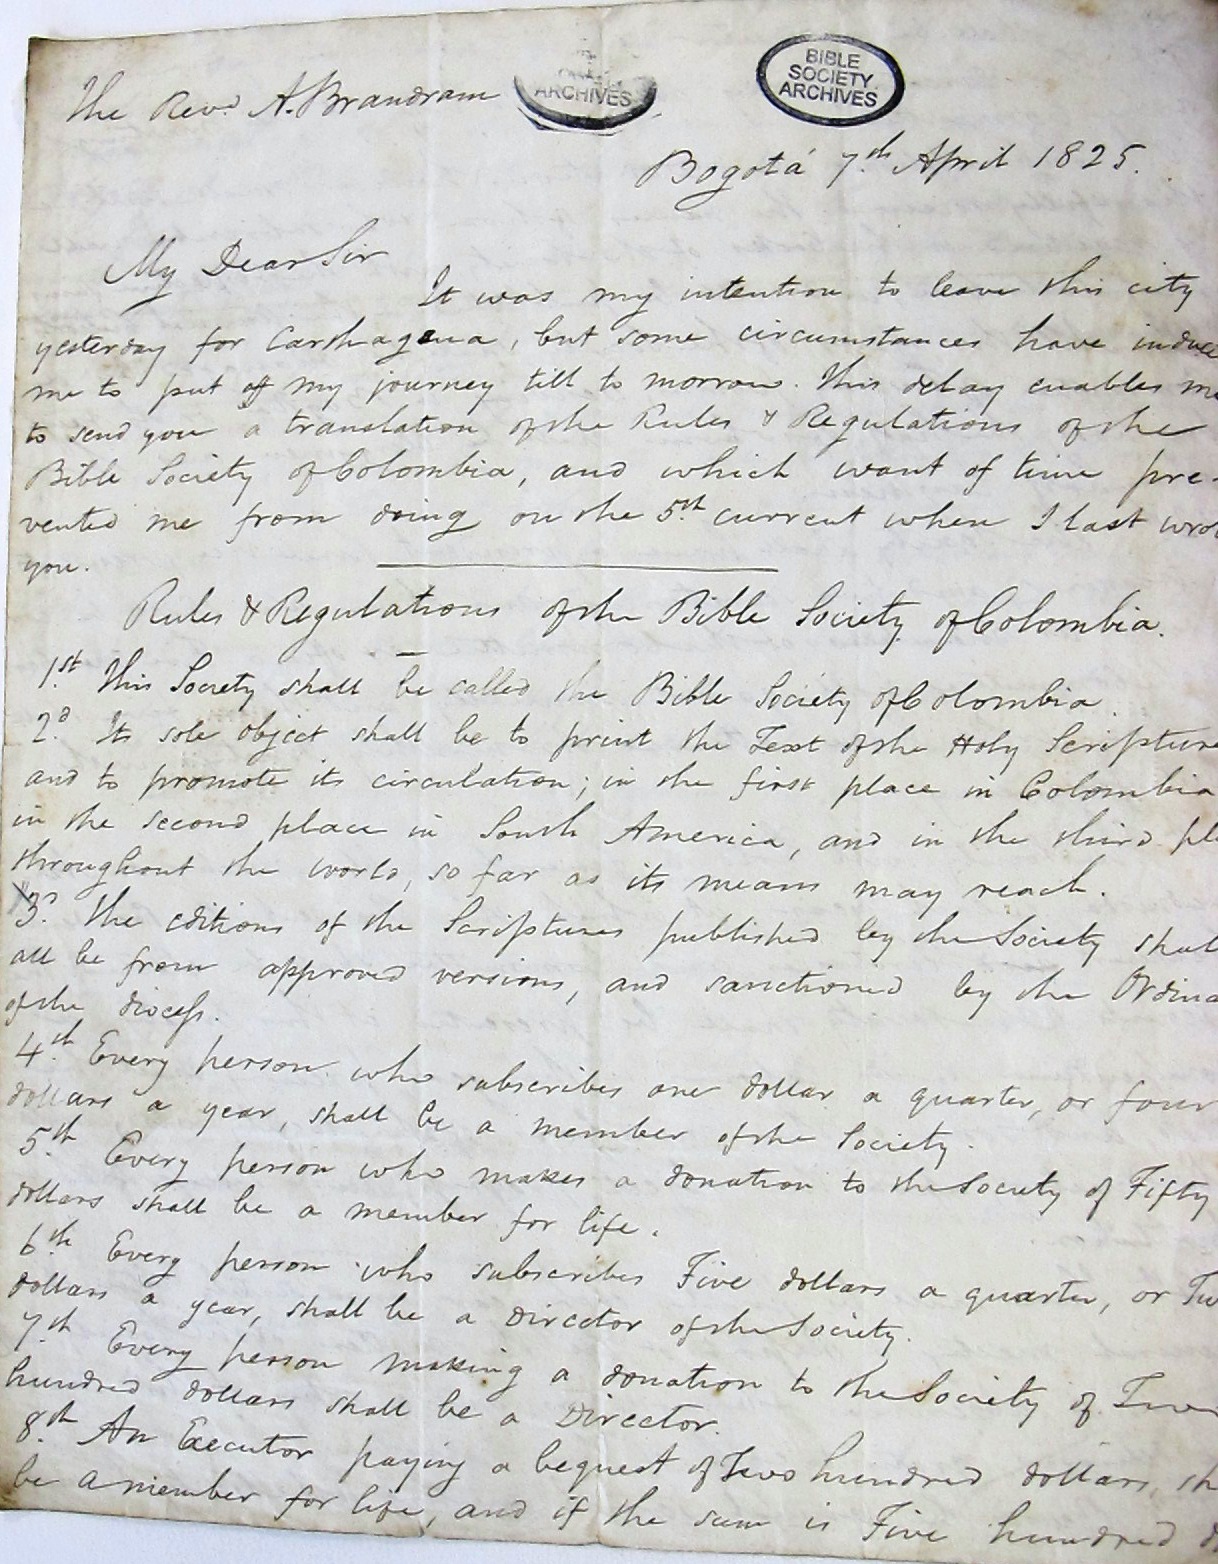 The Revd. A. Brandram
ARCHIVES
BIBLE
SOCIETY
ARCHIVES
Bogotá 7th. April 1825.
My Dear Sir
It was my intention to leave this city
yesterday for Carthagena, but some circumstances have induced
me to put off my journey till to morrow. This delay enables me
to send you a translation of the Rules & Regulations of the
Bible Society of Colombia, and which want of time pre-
vented me from doing on the 5th. current when I last wrote
you.
Rules & Regulations of the Bible Society of Colombia.
1st. This Society shall be called the Bible Society of Colombia.
2d. Its sole object shall be to print the Text of the Holy Scriptures
and to promote its circulation; in the first place in Colombia
in the second place in South America, and in the third pl
throughout the world, so far as its means may reach.
3d. The editions of the Scriptures published by the Society shall
all be from approved versions, and sanctioned by the Ordina
of the diocess.
4th. Every person who subscribes one dollar a quarter, or four
dollars a year, shall be a member of the Society.
5th. Every person who makes a donation to the Society of Fifty
dollars shall be a member for life.
6th. Every person who subscribes Five dollars a quarter, or Tw
dollars a year, shall be a Director of the Society.
7th. Every person making a donation to the Society of Two
hundred dollars shall be a Director.
8th. An Executor paying a bequest of Two hundred dollars, sh
be a member for life, and if the sum is Five hundred d